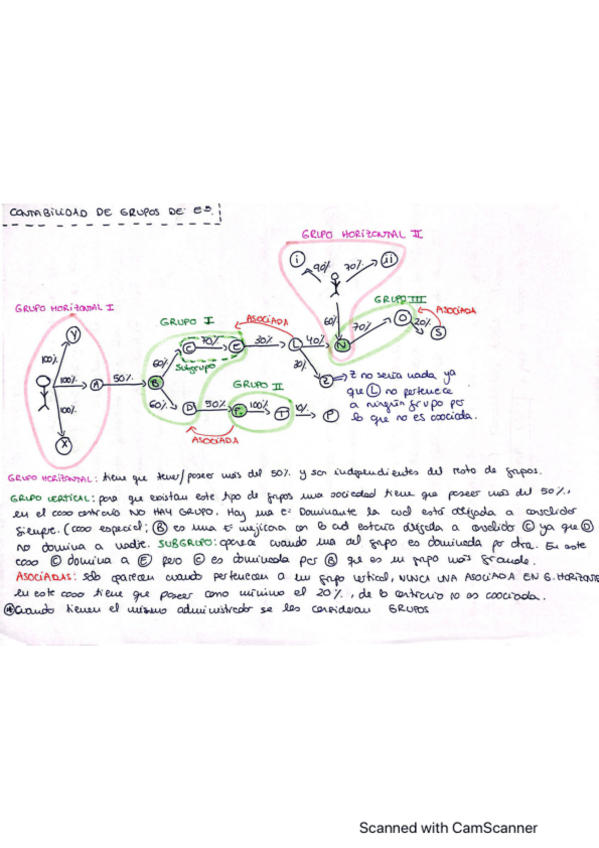 CONTABILIDAD DE GRUPOS DE Eº.
GRUPO HORIZONTAL II
i
90%
70%
ii
GRUPO III
GRUPO HORIZONTAL I
GRUPO I
ASOCIADA
60%
70%
O
20%
ASOCIADA
S
Y
C
70%
E
30%
L
40%
N
100%
Subgrupo
60%
30%
100%
A
50%
B
GRUPO II
Z
Z no seria nada ya
que L no pertenece
a ningún grupo por
lo que no es asociada.
100%
60%
D
50%
F
100%
T
10%
P
X
ASOCIADA
GRUPO HORIZONTAL: tiene que tener/poseer más del 50% y son independientes del resto de grupos.
GRUPO VERTICAL: para que existan este tipo de grupos una sociedad tiene que poseer más del 50%,
en el caso contrario NO HAY GRUPO. Hay una Eª Dominante la cual está obligada a consolidar
siempre. (caso especial; B es una Eª mejicana con lo cual estaría obligada a consolidar C ya que D
no domina a nadie. SUBGRUPO: aparece cuando una del grupo es dominada por otra. En este
caso C domina a E pero C es dominada por B que es un grupo más grande.
ASOCIADAS: solo aparecen cuando pertenecen a un grupo vertical, NUNCA UNA ASOCIADA EN G. HORIZONTAL
en este caso tiene que poseer como mínimo el 20%, de lo contrario no es asociada.
Cuando tienen el mismo administrador se les consideran GRUPOS
Scanned with CamScanner